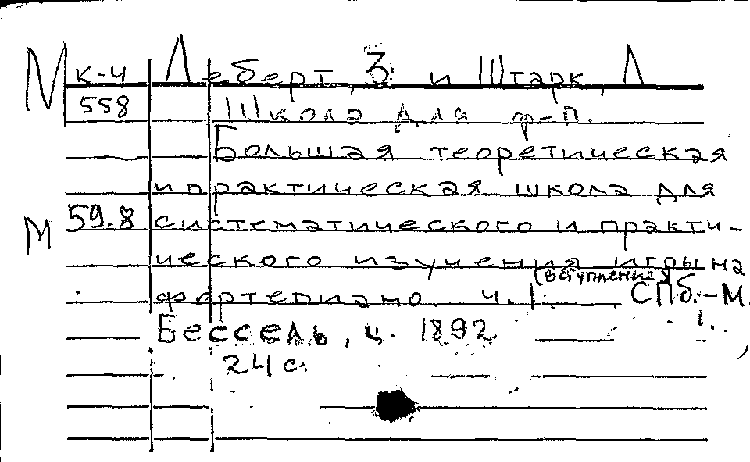 М к-ч Леберт, З и Штарк, Л
558 Школа для ф-п.
Большая теоретическая
и практическая школа для
М 59.8 систематического и практи-
ческого изучения игры на
фортепиано ч. I (вступление) СПб.-М.
Бессель, ц. 1892
24 с.